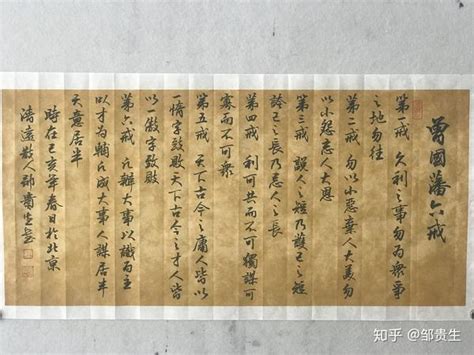 曾國藩六戒
第一戒 久利之事勿為衆爭
之地勿往
第二戒 勿以小惡棄人大美勿
以小怨忘人大恩
第三戒 說人之短乃護己之短
誇己之長乃忌人之長
第四戒 利可共而不可獨謀可
寡而不可衆
第五戒 天下古今之庸人皆以
一惰字致敗天下古今之才人皆
以一傲字致敗
第六戒 凡辦大事以識為主
以才為輔凡成大事人謀居半
天意居半
時在己亥年春日於北京
清遠散人鄒貴生書
知乎 @邹贵生